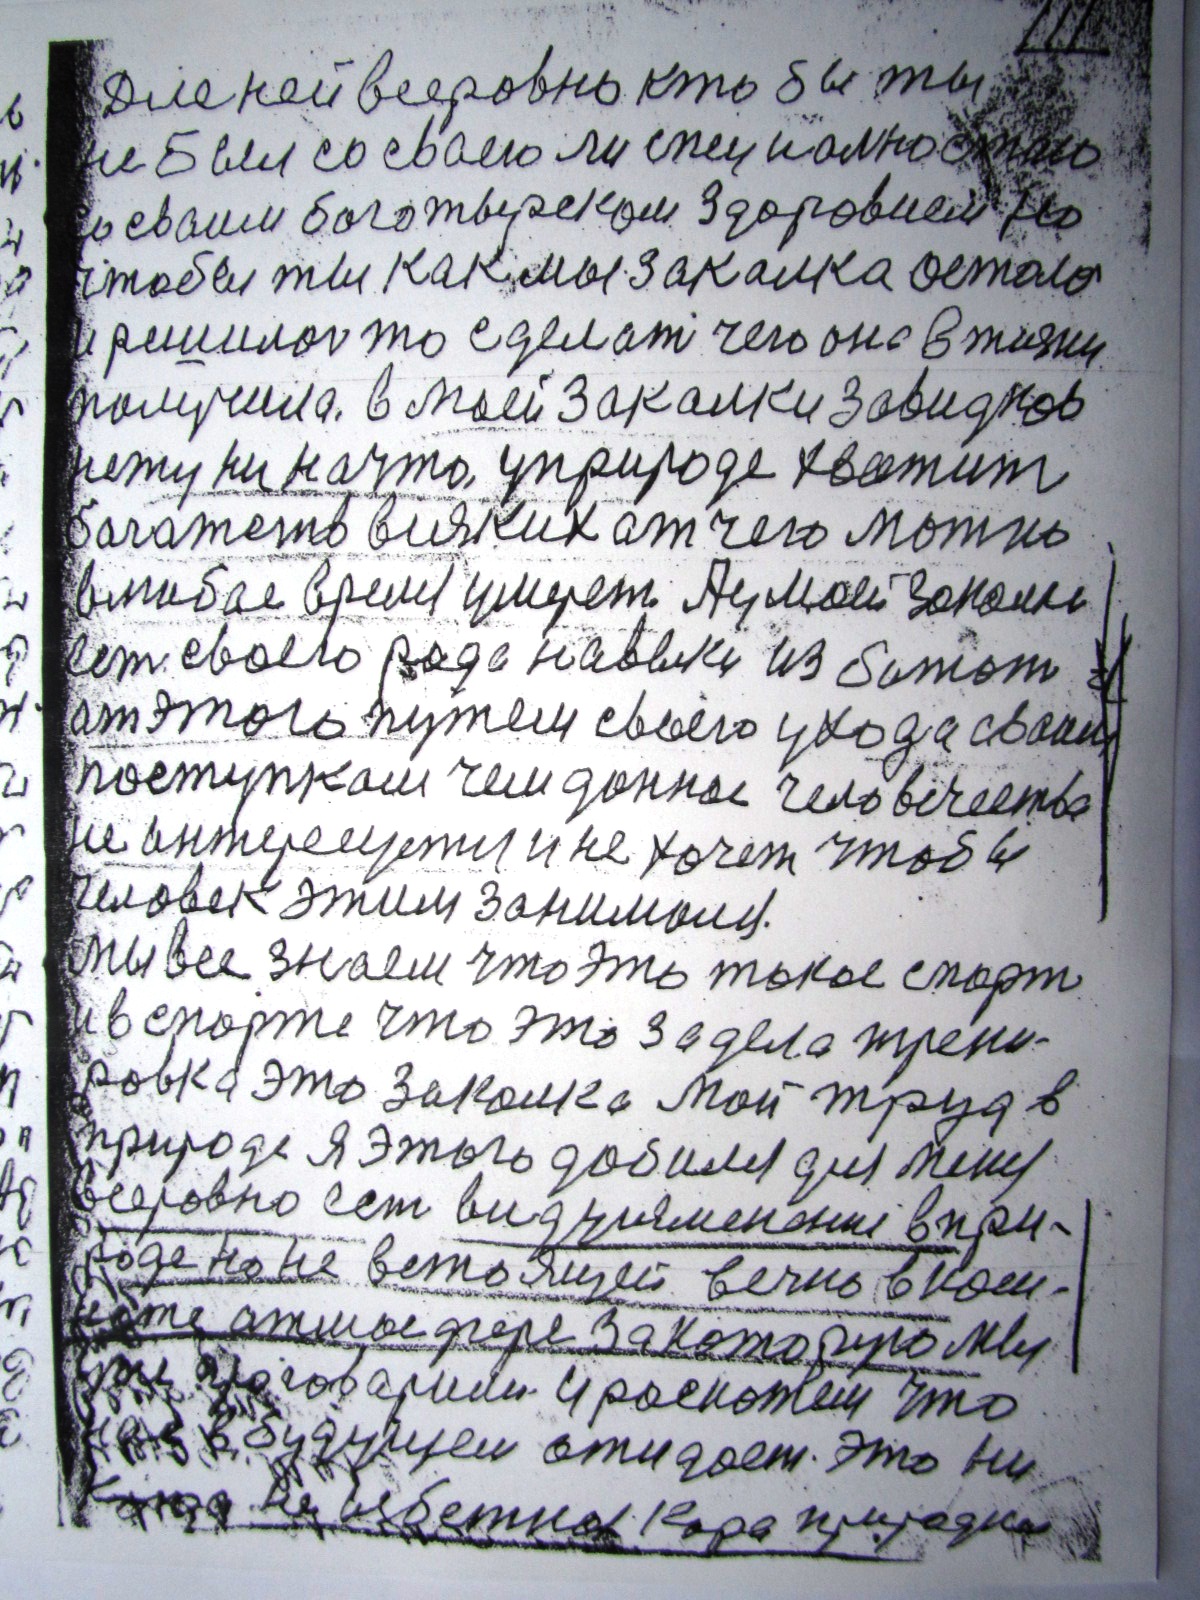 111
Для ней всеровно кто бы ты
не был со своею ли специалностью
со своим боготырском здоровием но
чтобы ты как мы. закалка остало
и решилось то сделат чего она в жизни
получила. в моей закалки завидков
нету ни на что. у природе хватит
багатств всяких от чего можно
в любое время умерет. А у моей закалки
ест своего рода навыки избежат
от этого путем своего ухода своим
поступкам чем данное человечества
не интересуется и не хочет чтобы
человек этим занимался.
мы все знаем что это такое спорт
и в спорте что это за дела трени-
ровка это закалка мой труд в
природе я этого добился для меня
всеровно ест видузменение в при-
роде но не в стоящей вечно в ком-
нате атмосфере за которую мы
уже проговарили и роскажем что
нас в будущем ожидает. это ни
когда не избежная кара природы